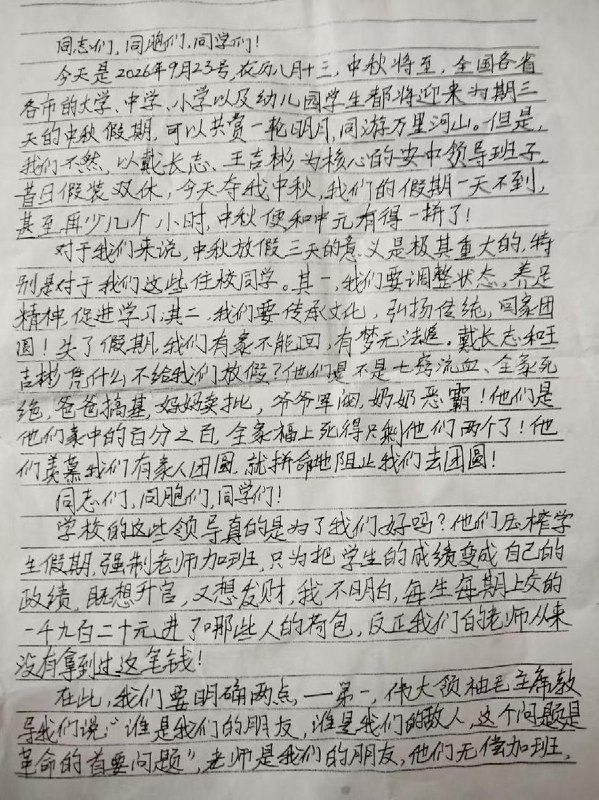 同志们,同胞们,同学们!
今天是2026年9月23号,农历八月十三,中秋将至,全国各省
各市的大学、中学、小学以及幼儿园学生都将迎来为期三
天的中秋假期,可以共赏一轮明月,同游万里河山。但是,
我们不然,以戴长志、王吉彬为核心的安中领导班子,
昔日假装双休,今天夺我中秋,我们的假期一天不到,
甚至再少几个小时,中秋便和中元有得一拼了!
对于我们来说,中秋放假三天的意义是极其重大的,特
别是对于我们这些住校同学。其一,我们要调整状态,养足
精神,促进学习;其二,我们要传承文化,弘扬传统,回家团
圆!失了假期,我们有家不能回,有梦无法追,戴长志和王
吉彬凭什么不给我们放假?他们是不是七窍流血、全家死
绝,爸爸搞基,妈妈卖批,爷爷军阀,奶奶恶霸!他们是
他们家中的百分之百,全家福上死得只剩他们两个了!他
们羡慕我们有家人团圆,就拼命地阻止我们去团圆!
同志们,同胞们,同学们!
学校的这些领导真的是为了我们好吗?他们压榨学
生假期,强制老师加班,只为把学生的成绩变成自己的
政绩,既想升官,又想发财,我不明白,每生每期上交的
一千九百二十元,进了哪些人的荷包,反正我们的老师从来
没有拿到过这笔钱!
在此,我们要明确两点,——第一,伟大领袖毛主席教
导我们说:“谁是我们的朋友,谁是我们的敌人,这个问题是
革命的首要问题”,老师是我们的朋友,他们无偿加班,